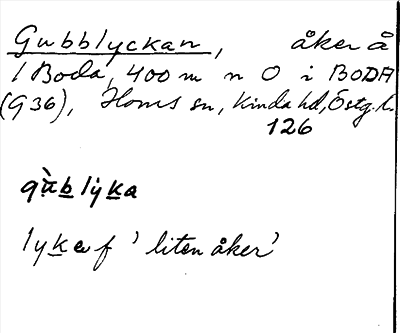 Gubblyckan, åker å
1 Boda, 400 m n O i BODA
(G36), Horns sn, Kinda hd, Östg. l.
126
gùblyka
lyka f 'liten åker'